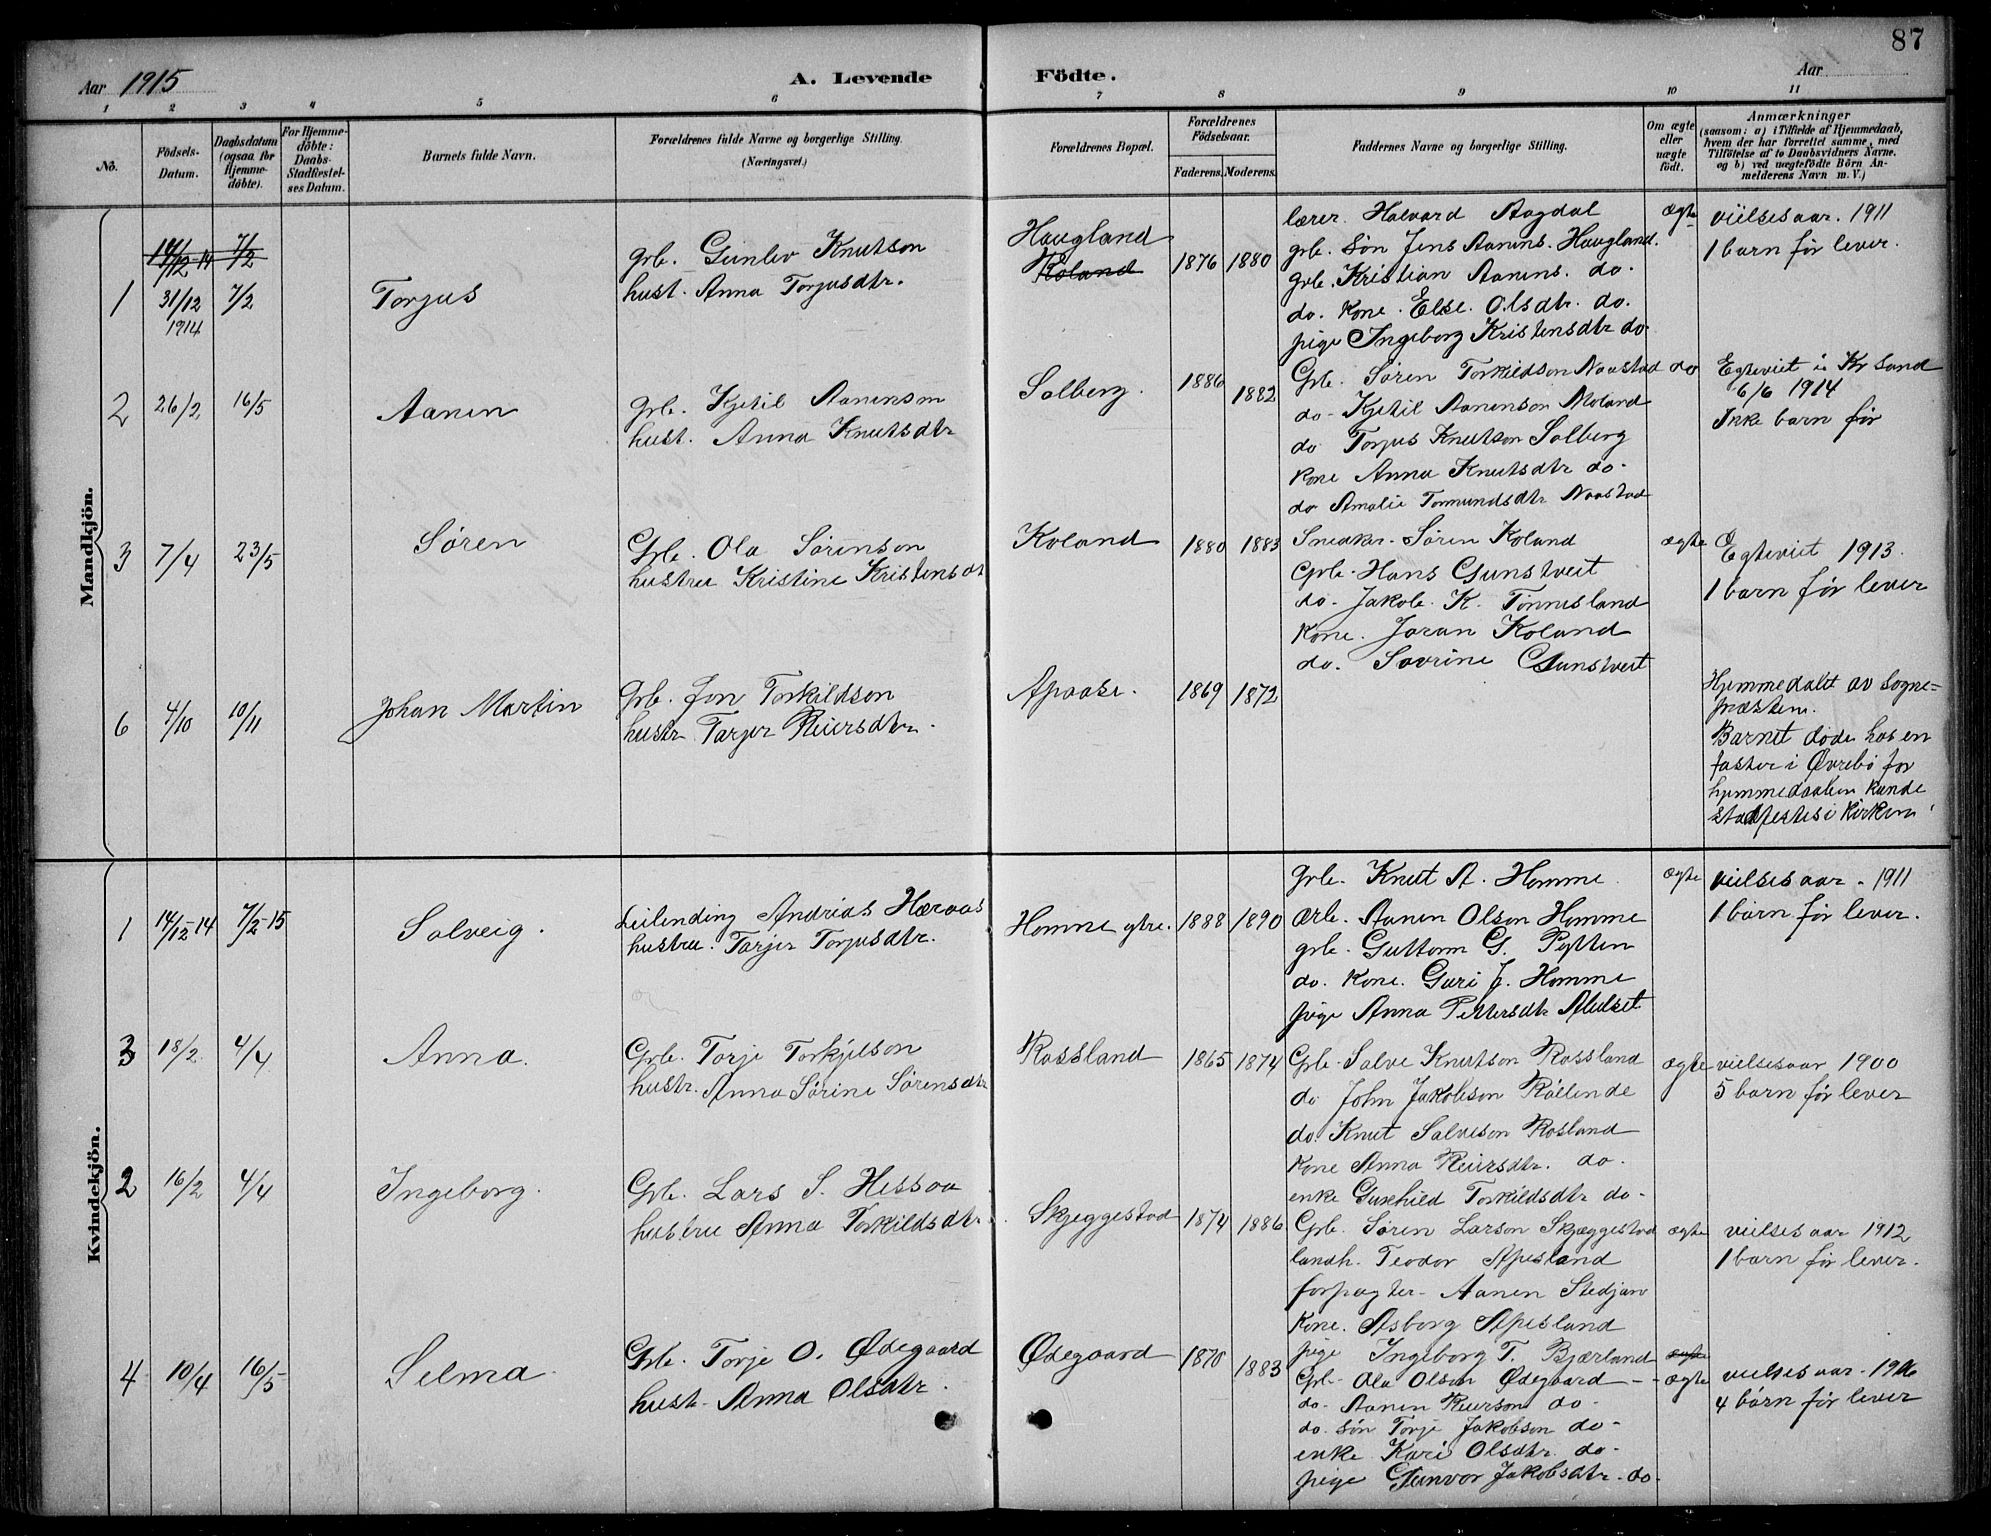 87
Aar 1915
A. Levende Födte.
Aar
1 2 3 4 5 6 7 8 9 10 11
No.
Födsels-Datum.
Daabsdatum (ogsaa for Hjemme-döbte).
For Hjemme-döbte: Daabs-Stadfestel-ses Datum.
Barnets fulde Navn.
Forældrenes fulde Navne og borgerlige Stilling.
(Næringsvei.)
Forældrenes Bopæl.
Forældrenes Födselsaar.
Faderens. Moderens.
Faddernes Navne og borgerlige Stilling.
Om ægte eller uægte födt.
Anmærkninger
(saasom: a) i Tilfælde af Hjemmedaab,
hvem der har forrettet samme, med
Tilföielse af to Daabsvidners Navne.
og b) ved uægtefödte Börn An-
melderens Navn m. V.)
Mandkjön.
14/12-14 7/2
1 31/12 1914 7/2 Torjus
grb. Gunlev Knutson
hust. Anna Torjusdtr.
Haugland
Koland
1876 1880
lærer. Halvard Aagdal
grb. søn Jens Aanens. Haugland.
grb. Kristian Aanens. do.
do. kone. Else. Olsdtr. do.
pige Ingeborg Kristensdtr do.
ægte
vielsesaar. 1911
1 barn før lever.
2 26/2 16/5 Aanen
grb. Kjetil Aanenson
hust. Anna Knutsdtr
Solberg.
1886 1882
Grb. Søren Torkildson Naastad
do. Kjetil Aanenson Moland
do Torjus Knutson Solberg
kone Anna Knutsdtr do.
do Amalie Tormundsdtr Naastad
do
Egteviet i Kr sand
6/6 1914
Ikke barn før
3 7/4 23/5 Søren
Grb. Ola Sørenson
hustru Kristine Kristensdt
Koland
1880 1883
Snedker. Søren Koland
Grb. Hans Gunstveit
do. Jakob. K. Tønnesland
kone. Joran Koland
do. Sovrine Gunstveit
ægte
Egteviet 1913.
1 barn før lever
6 4/10 10/11 Johan Martin
Grb. Jon Torkildson
hustr Tarjer Reiersdtr.
Apaase.
1869 1872
Hjemmedøbt av sogne=
præsten.
Barnet døde hos en
faster i Øvrebø før
hjemmedaaben kunde
stadfestes i kirken
Kvindekjön.
1 14/12-14 7/2-15 Solveig.
Leilending Andrias Hæraas
hustru. Tarjer Torjusdtr.
Homme ytre.
1888 1890
Grb. Knut A. Homme
Arb. Aanen Olson Homme
grb. Guttorm G. Pytten
do. kone. Guri J. Homme
pige Anna Pettersdtr
ægte
vielsesaar. 1911
1 barn før lever.
3 18/2 4/4 Anna.
Grb. Torje Torkjelson
hustr. Anna Sørine Sørensdtr
Rossland
1865 1874
Grb. Salve Knutson Rossland
do John Jakobson Røllende
do. Knut Salveson Rosland
kone Anna Reiersdtr. do.
enke Gunhild Torkildsdtr do.
ægte
vielsesaar 1900
5 barn før lever
2 16/2 4/4 Ingeborg.
Grb. Lars S. Hessaa
hustru Anna Torkildsdtr.
Skjeggestad
1874 1886
Grb. Søren Larson Skjæggestad
landh. Teodor Apesland
forpagter. Aanen Stedjan
kone. Asborg Apesland
pige Ingeborg T. Bjærland
ægte
vielsesaar 1912
1 barn før lever.
4 10/4 16/5 Selma.
Grb. Torje O. Ødegaard
hust. Anna Olsdtr.
Ødegaard
1870 1883
Grb. Ola Olson Ødegaard
do. Aanen Reierson do.
do. søn Torje Jakobson do.
enke Kari Olsdtr. do.
pige Gunvor Jakobsdtr. do.
ægte
ægte
vielsesaar. 1906
4 børn før lever